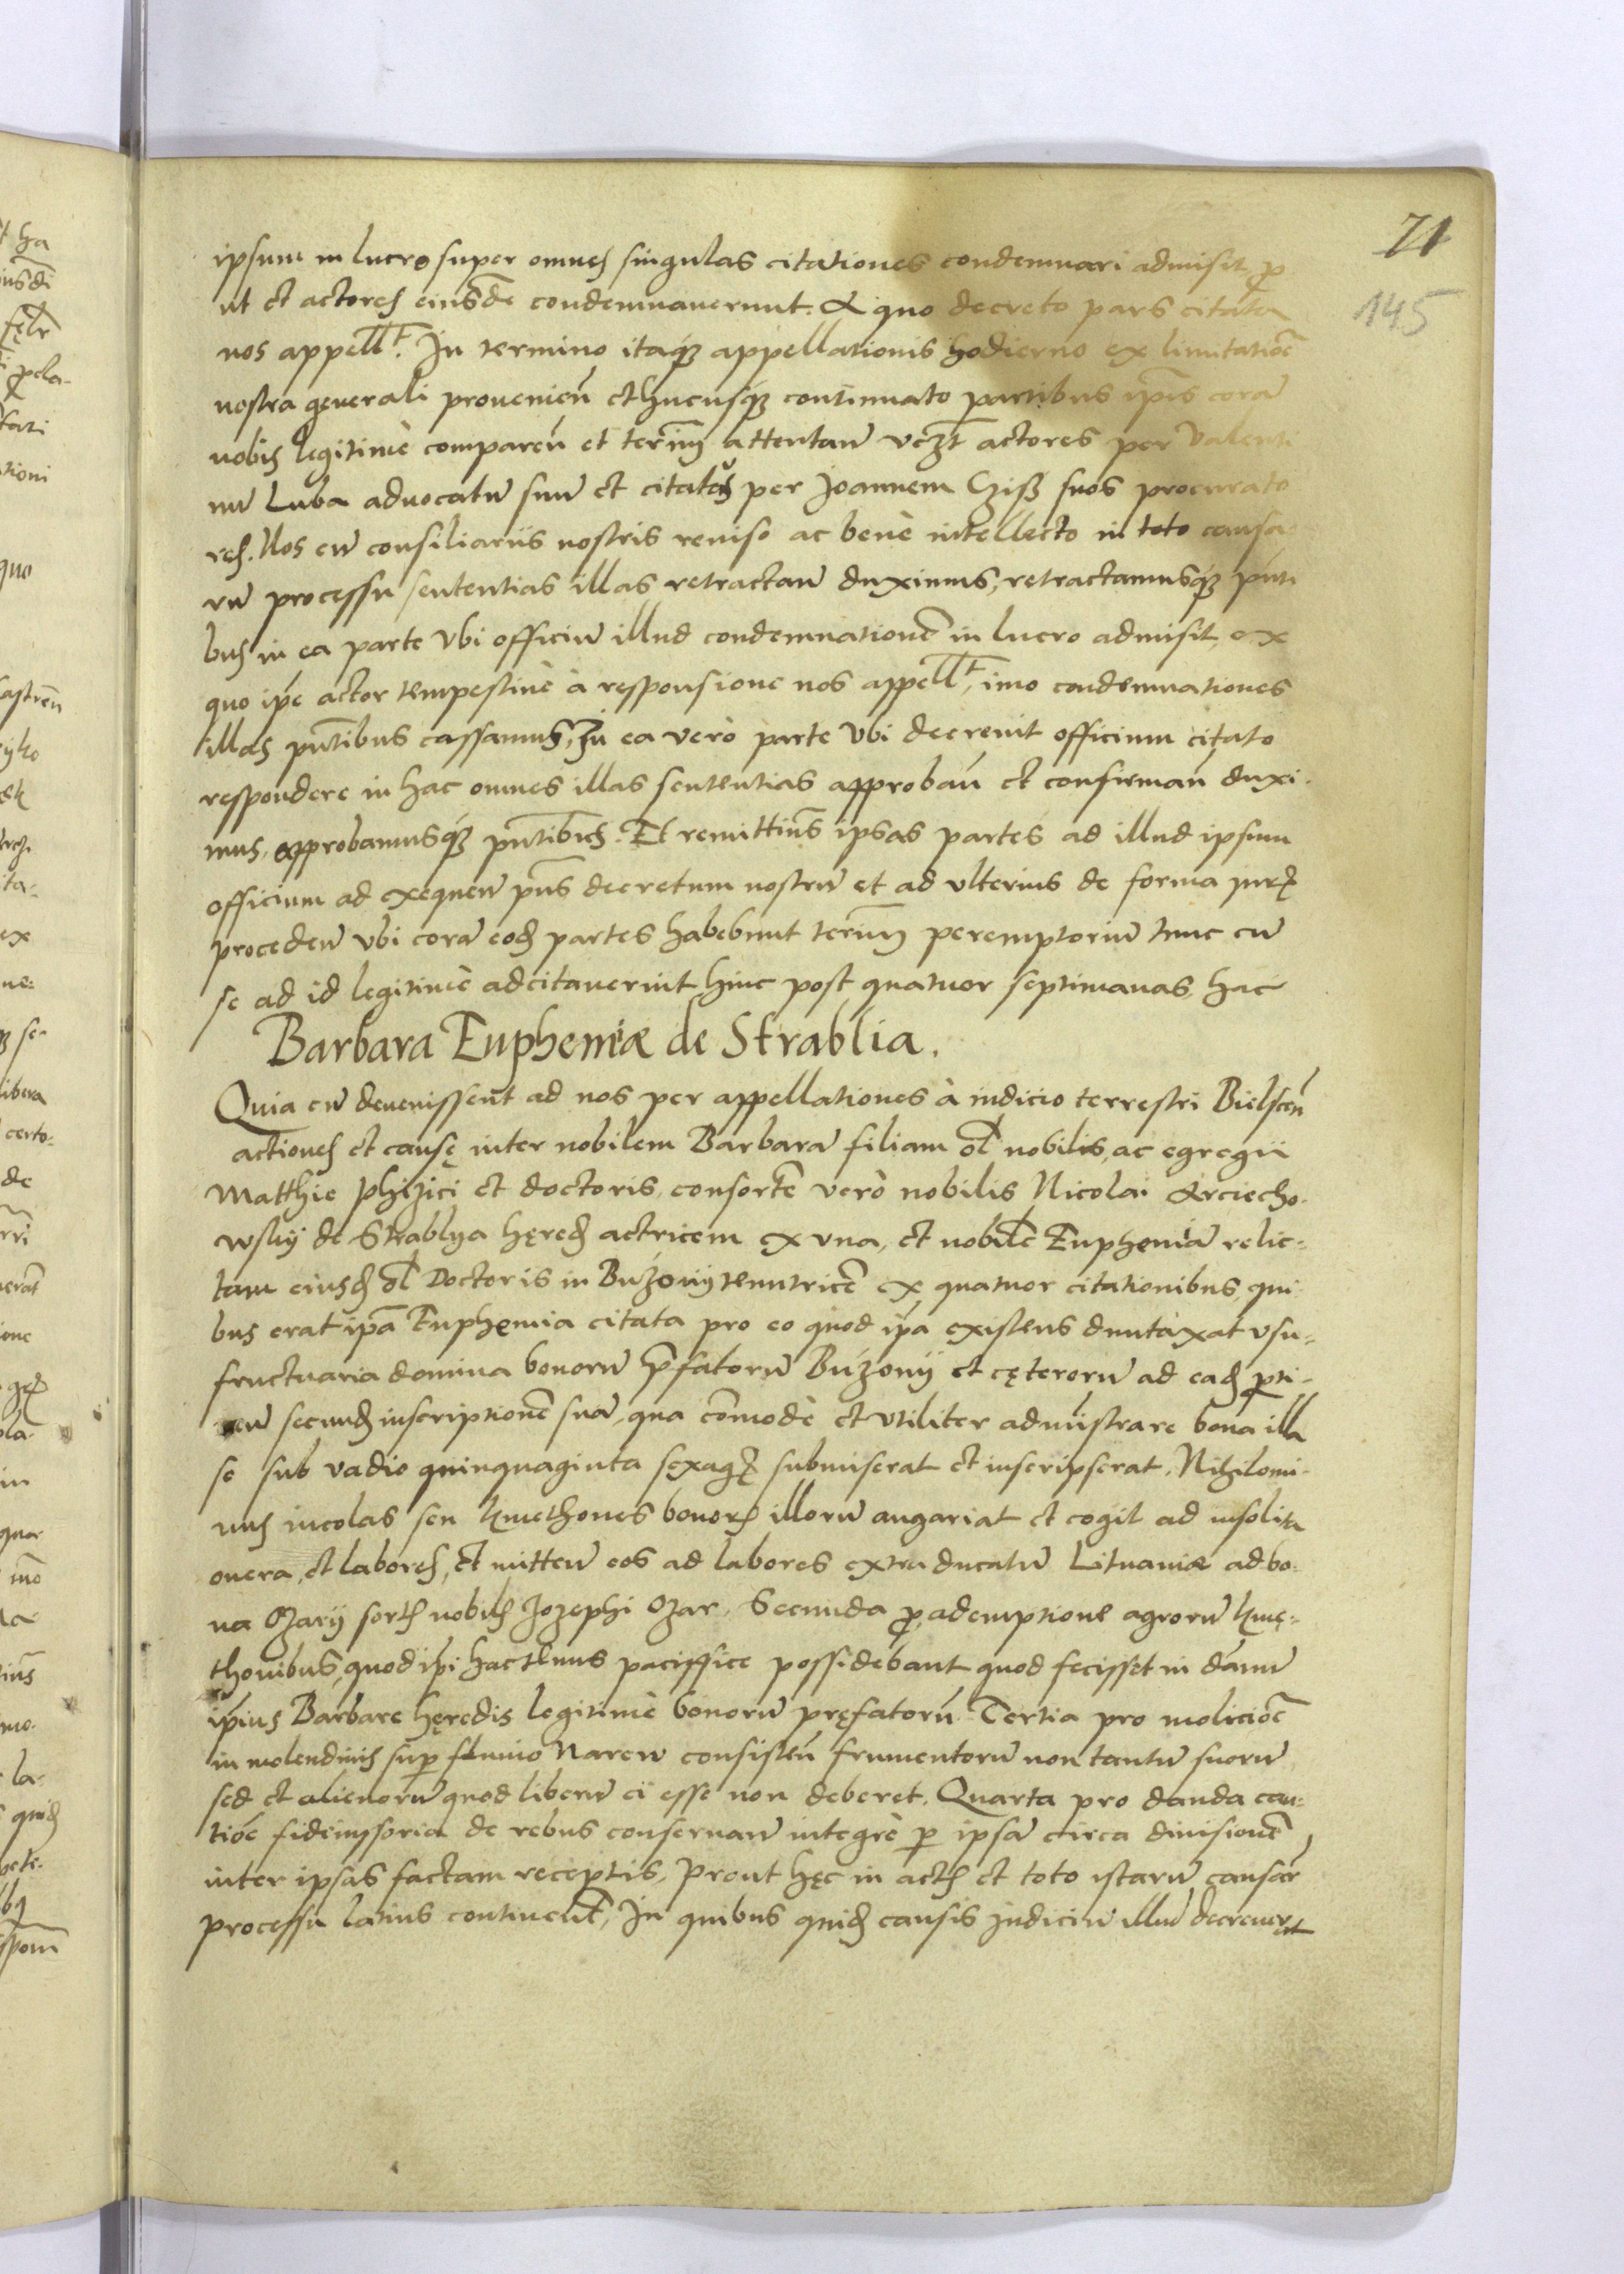 71
145
ipsum in lucro super omnes singulas citationes condemnari admisit, ꝓ
ut et actores eiusde condemnauerunt. A quo decreto pars citata
nos appellt. In termino itaqꝫ appellationis hodierno ex limitatioe
nostra generali prouenień et hucusqꝫ continuato partibus ipis cora
nobis legitimè compareń et termĩ attentań vczt actores per Valenti
nũ Luba aduocatũ suũ et citatus per Joannem Cziß suos procurato
res. Nos cũ consiliariis nostris reuiso ac benè intellecto in toto causa
rũ processu sententias illas retractań duximus, retractamusqꝫ pnti
bus in ea parte vbi officiũ illud condemnationẽ in lucro admisit, ex
quo ipe actor tempestiuè à responsione nos appellt, imo condemnationes
illas pntibus cassamus, In ea verò parte vbi decreuit officium citato
respondere in hac omnes illas sententias approbań et confirmań duxi
mus, approbamusqꝫ pntibus. Et remittims ipsas partes ad illud ipsum
officium ad exequeń pns decretum nostrũ et ad vlterius de forma jurꝭ
procedeń vbi corã eod partes habebunt termĩ peremptoriũ tunc cũ
se ad id legitimè adcitauerint hinc post quatuor septimanas, hac
Barbara Euphemiæ de Strablia.
Quia cũ deuenissent ad nos per appellationes à iudicio terrestri Bielscen
actiones et causę inter nobilem Barbarã filiam ol nobilis, ac egregii
Matthie Phizici et doctoris, consortẽ verò nobilis Nicolai Arciecho-
wskij de Strablya hęred actricem ex vna, et nobilẽ Euphemiã relic-
tam eiusd ol Doctoris in Buzonij tenutricẽ ex quatuor citationibus, qui-
bus erat ipa Euphemia citata pro eo quod ipa existens duntaxat vsu-
fructuaria domina bonorũ pfatorũ Buzonij et cęterorũ ad ead ꝑti-
eń secund inscriptionẽ suã, qua com̃odè et vtiliter admistrare bona illa
se sub vadio quinquaginta sexagꝭ submiserat et inscripserat, Nihilomi-
nus incolas seu kmethones bonorꝭ illorũ angariat et cogit ad insolita
onera, et labores, et mitteń eos ad labores extra ducatũ Lituaniæ ad bo-
na Ozarij sortis nobilis Jozephi Ozar, Secunda ꝓ ademptione agrorũ kme-
thonibus, quod ipi hactenus paciffice possidebant quod fecisset in damũ
ipius Barbare hęredis legitimè bonorũ pręfatorũ. Tertia pro molicioe
in molendinis sup fluuio Narew consisteń frumentorũ non tantũ suorũ,
sed et alienorũ quod liberũ ei esse non deberet. Quarta pro danda cau-
tioe fideiussoria de rebus conseruań integrè ꝑ ipsã circa diuisionẽ
inter ipsas factam receptis, Prout hęc in actis et toto istarũ causar
processu latius continent, In quibus quid causis iudiciũ illud decreuerat